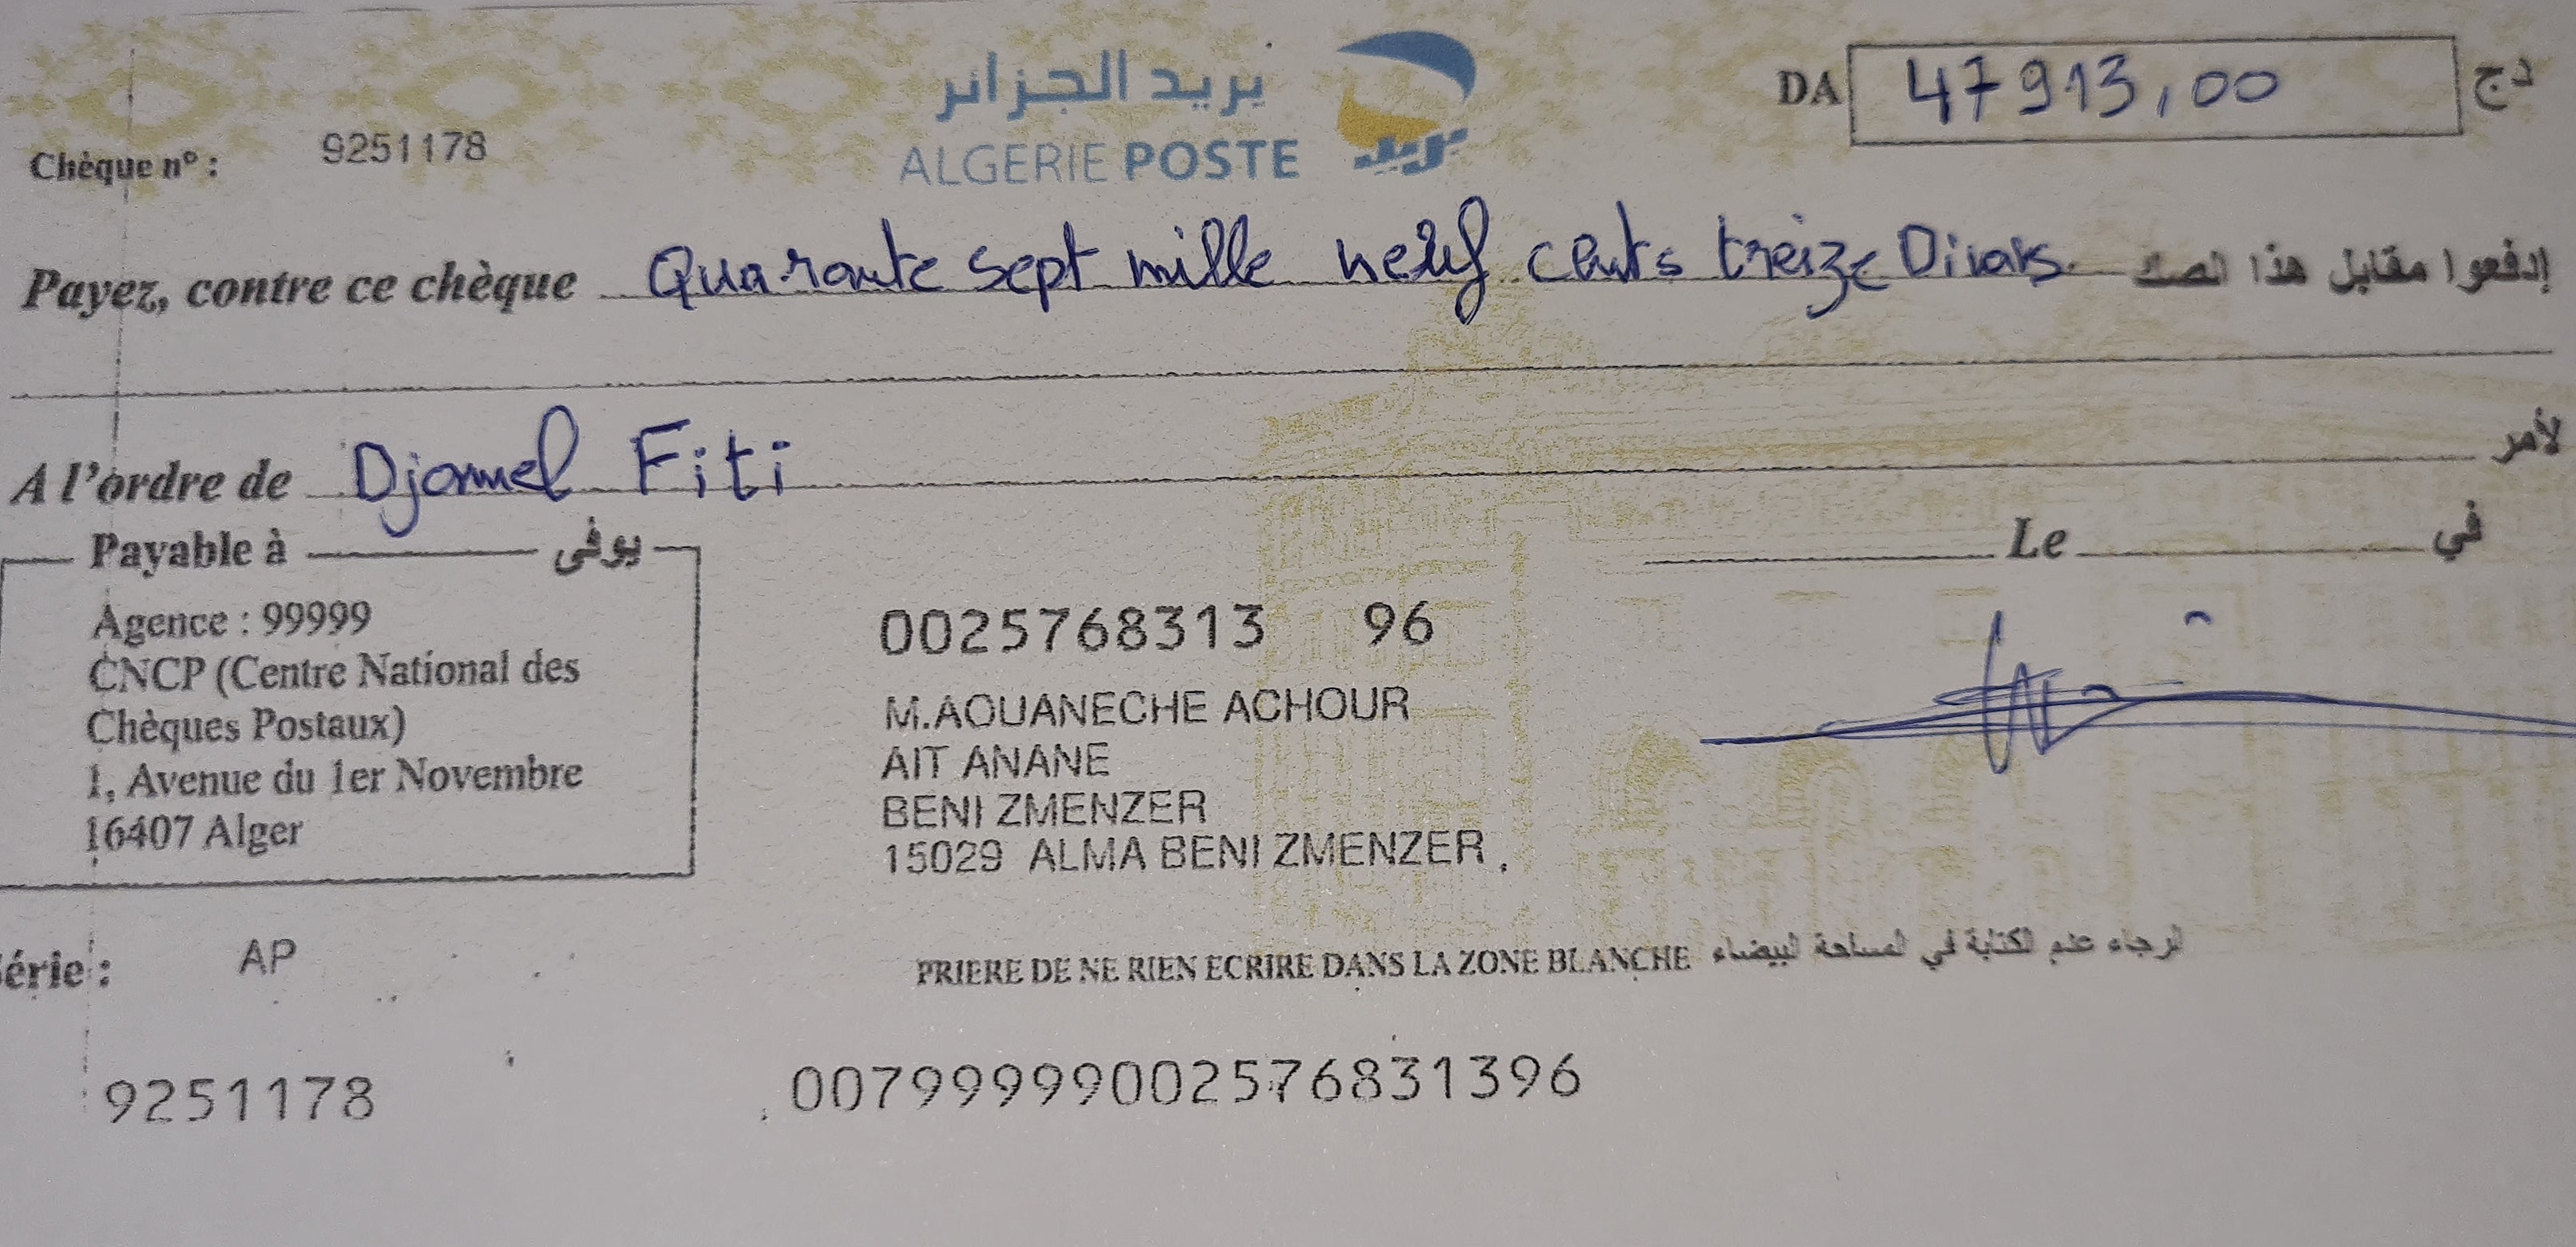 بريد الجزائر
ALGERIE POSTE
بريد
DA 47913,00 دج
Chèque n° : 9251178
Payez, contre ce chèque Quarante sept mille neuf cents treize Dinars. إدفعوا مقابل هذا الصك
A l'ordre de Djamel Fiti لأمر
Payable à يوفى
Le في
Agence : 99999
CNCP (Centre National des
Chèques Postaux)
1, Avenue du 1er Novembre
16407 Alger
0025768313 96
M.AOUANECHE ACHOUR
AIT ANANE
BENI ZMENZER
15029 ALMA BENI ZMENZER
érie : AP
PRIERE DE NE RIEN ECRIRE DANS LA ZONE BLANCHE الرجاء عدم الكتابة في المساحة البيضاء
9251178 00799999002576831396